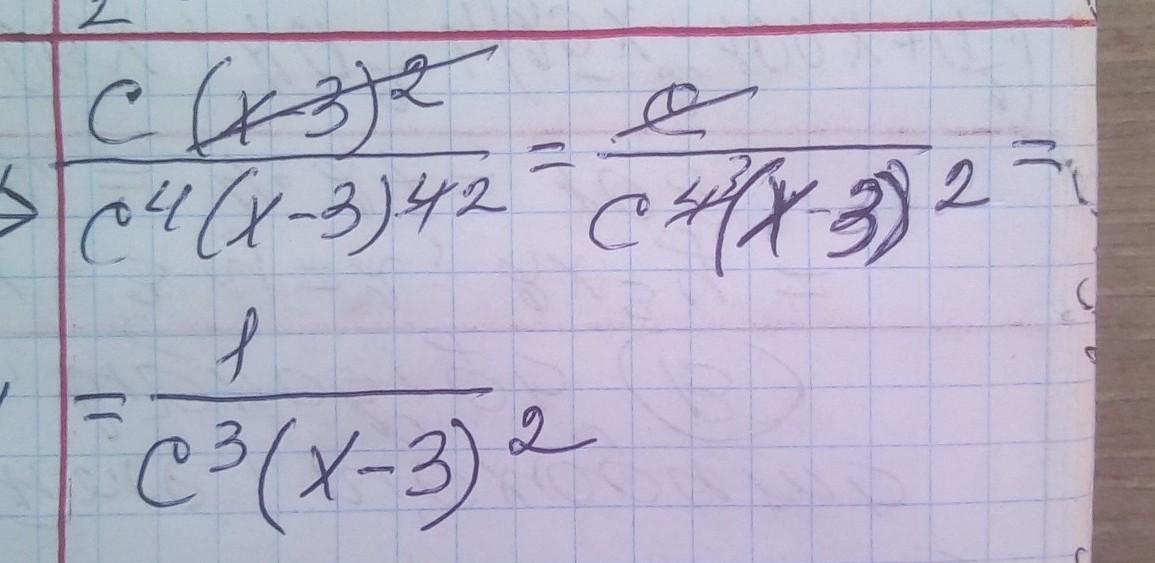 2
c(x-3)² / c⁴(x-3)⁴ ² = c / c⁴ ³(x-3)² =
= 1 / c³(x-3)²